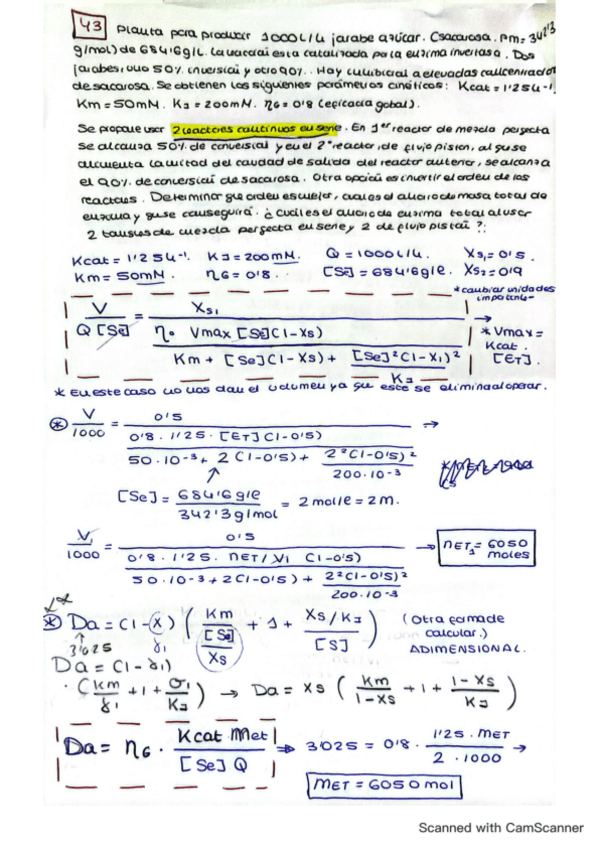 43 Planta para producir 1000L/h jarabe azúcar. Csacarosa. Pm = 342'3
g/mol) de 684'6g/L. La reacción está catalizada por la enzima invertasa. Dos
jarabes: uno 50% inversión y otro 90%. Hay inhibición a elevadas concentración
de sacarosa. Se obtienen los siguientes parámetros cinéticos: Kcat = 1'25 h-1
Km = 50mM. K3 = 200mM. η6 = 0'8 (eficacia global).
Se propone usar 2 reactores continuos en serie. En 1er reactor de mezcla perfecta
se alcanza 50% de conversión y en el 2º reactor, de flujo pistón, al que se
alimenta la mitad del caudal de salida del reactor anterior, se alcanza
el 90% de conversión de sacarosa. Otra opción es invertir el orden de los
reactores. Determinar que orden escoger, cual es el ahorro de masa total de
enzima y que se conseguirá. ¿Cuál es el ahorro de enzima total al usar
2 tanques de mezcla perfecta en serie y 2 de flujo pistón?:
Kcat = 1'25 h-1. K3 = 200mM. Q = 1000L/h Xs1 = 0'5.
Km = 50mM. η6 = 0'8. [Se] = 684'6g/e. Xs2 = 0'9
* cambiar unidades importante
V / Q [Se] = Xs1 / η · Vmax [Se](1-Xs) / Km + [Se](1-Xs) + [Se]²(1-X1)² / K3 →
* Vmax = Kcat · [ET].
* En este caso no nos dan el volumen ya que este se elimina al operar.
* V / 1000 = 0'5 / 0'8 · 1'25 · [ET](1-0'5) / 50·10-3 + 2(1-0'5) + 2²(1-0'5)² / 200·10-3 →
[Se] = 684'6 g/e / 342'3 g/mol = 2 mol/e = 2M.
V1 / 1000 = 0'5 / 0'8 · 1'25 · nET / V1 (1-0'5) / 50·10-3 + 2(1-0'5) + 2²(1-0'5)² / 200·10-3 → nET1 = 6050 moles
* Da = (1-X) ( Km / [Se] / Xs + 1 + Xs/K3 / [S] ) (Otra forma de calcular.) ADIMENSIONAL.
3'025 γ1
Da = (1-γ1)
· (Km / γ1 + 1 + σ1 / K3) → Da = Xs ( Km / 1-Xs + 1 + 1-Xs / K3 )
Da = η6 · Kcat Met / [Se] Q ⇒ 3'025 = 0'8 · 1'25 · MET / 2 · 1000 →
MET = 6050 mol
Scanned with CamScanner